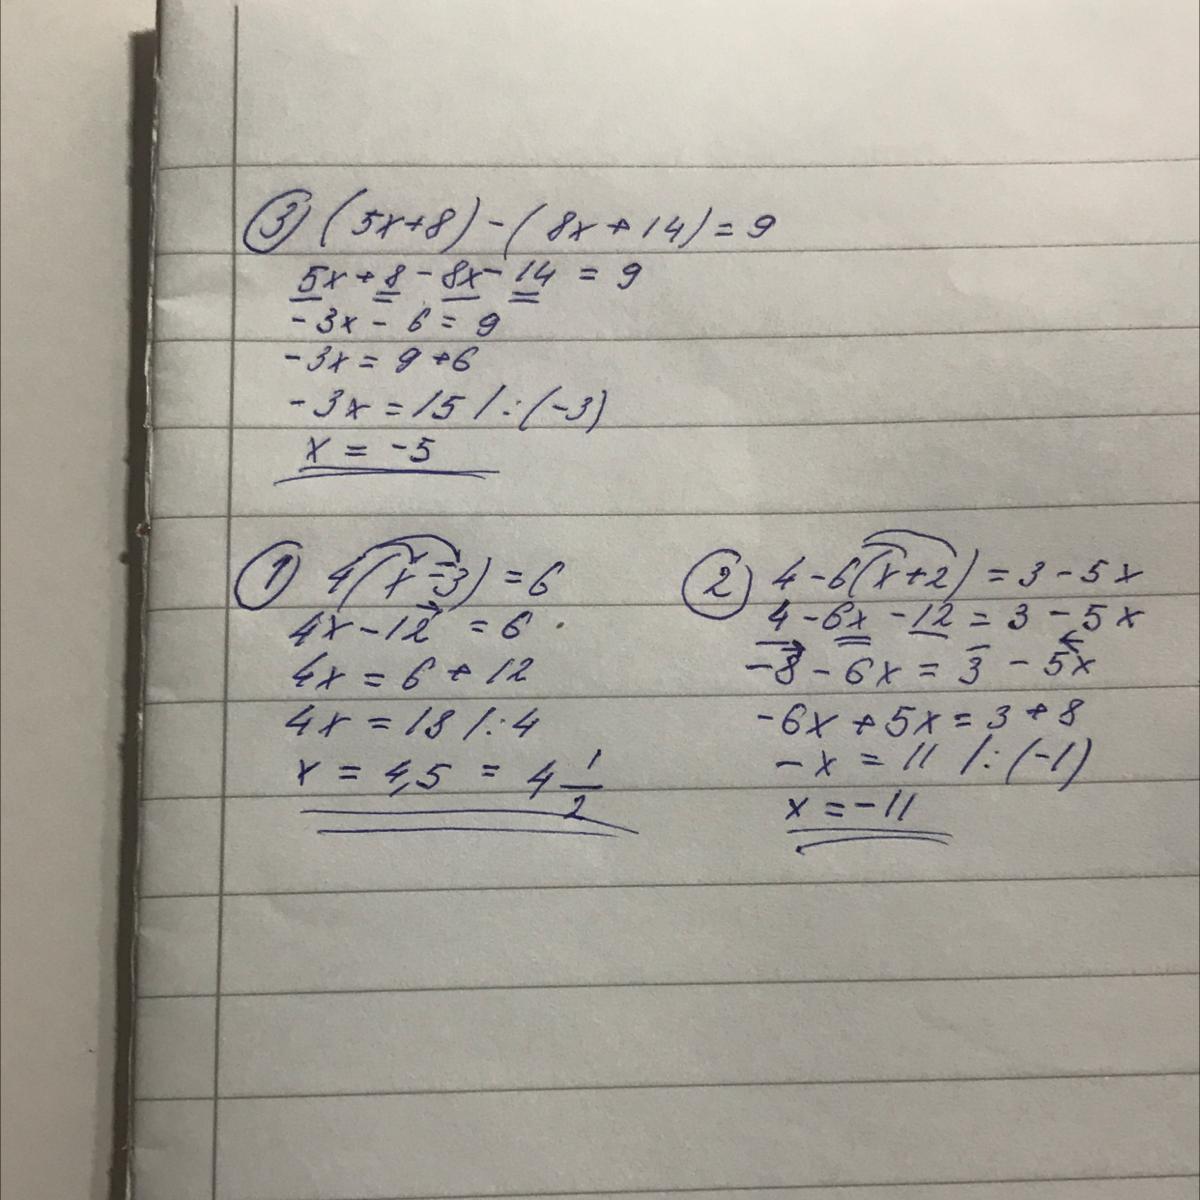 3) (5x+8)-(8x+14)=9
5x+8-8x-14=9
-3x-6=9
-3x=9+6
-3x=15/:(-3)
x=-5
1) 4(x-3)=6
4x-12=6
4x=6+12
4x=18/:4
x=4,5=4 1/2
2) 4-6(x+2)=3-5x
4-6x-12=3-5x
-8-6x=3-5x
-6x+5x=3+8
-x=11/:(-1)
x=-11